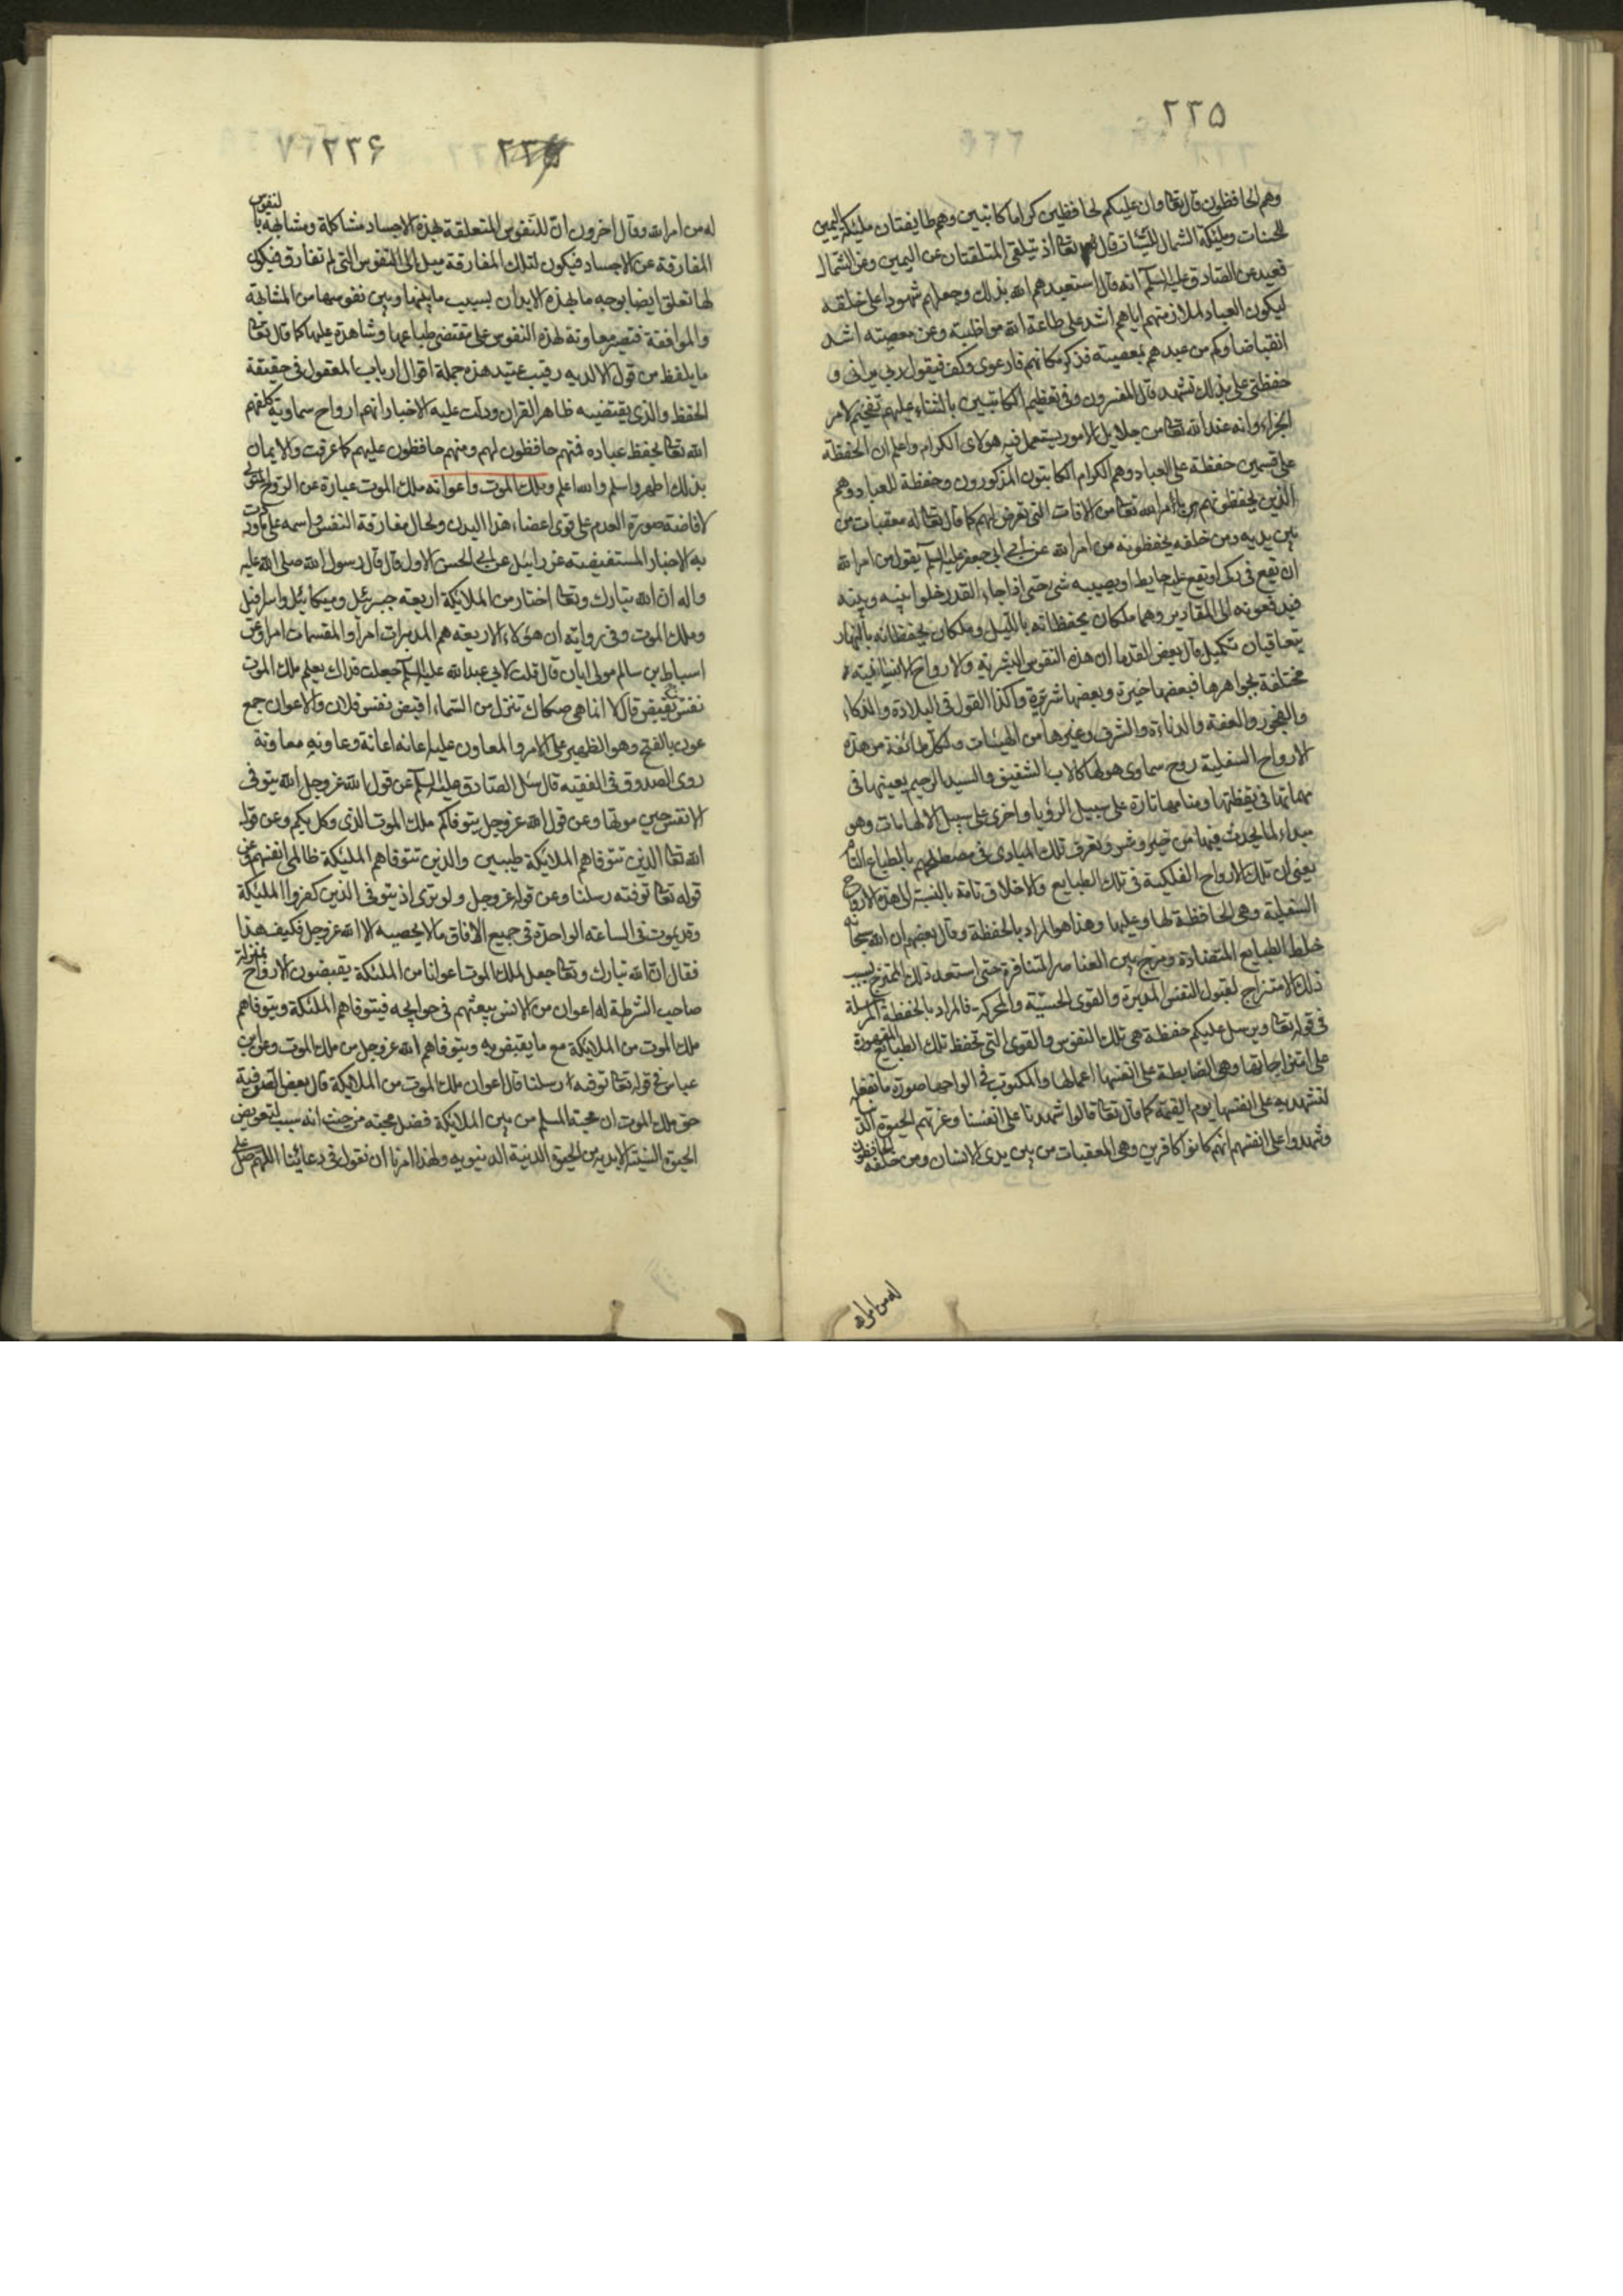 ٢٣۵
وهم الحافظون قال تعا وان عليكم لحافظين كراما كاتبين وهم طايفتان مليئكة اليمين
للحسنات ومليئكة الشمال للسيئات قال تعا اذ يتلقى المتلقيان عن اليمين وعن الشمال
قعيد عن الصادق عليه السلم انه قال استعبدهم الله بذلك وجعلهم شهودا على خلقه
ليكون العباد لملازمتهم اياهم اشد على طاعة الله مواظبة وعن معصيته اشد
انقباضا وكم من عبد هم بمعصيته فذكر مكانهم فارعوى وكف فيقول ربي يراني و
حفظتي على بذلك تشهد قال المفسرون وفي تعظيم الكاتبين بالثناء عليهم تفخيم لامر
الجزاء وانه عند الله تعا من جلايل الامور يستعمل فيه هولاء الكرام واعلم ان الحفظة
على قسمين حفظة على العباد وهم الكرام الكاتبون المذكورون وحفظة للعباد وهم
الذين يحفظونهم من امر الله تعا من الافات التي تعرض لهم كما قال تعا له معقبات من
بين يديه ومن خلفه يحفظونه من امر الله عن ابي جعفر عليه السلم يقول من امر الله
ان يقع في ركى او يقع عليه حايط او يصيبه شئ حتى اذا جاء القدر خلوا بينه وبينه
فيدفعونه الى المقادير وهما ملكان يحفظانه بالليل وملكان يحفظانه بالنهار
يتعاقبان تكميل قال بعض القدما ان هذه النفوس البشرية والارواح الانسانية
مختلفة بجواهرها فبعضها خيرة وبعضها شريرة وكذا القول في البلادة والذكاء
والفجور والعفة والدناءة والشرف وغيرها من الهيئات ولكل طائفة من هذه
الارواح السفلية روح سماوى هو لها كالاب الشفيق والسيد الرحيم يعينها في
مهماتها في يقظتها ومنامها تارة على سبيل الرؤيا واخرى على سبيل الالهامات وهو
مبداء لما يحدث فيها من خير وشر وتعرف تلك المبادى في مصطلحهم بالطباع التام
يعني ان تلك الارواح الفلكية في تلك الطبايع والاخلاق تامة بالنسبة الى هذه الارواح
السفلية وهي الحافظة لها وعليها وهذا هو المراد بالحفظة وقال بعضهم ان الله سبحانه
خلط الطبايع المتضادة ومزج بين العناصر المتنافرة حتى استعد ذلك الممتزج بسبب
ذلك الامتزاج لقبول النفس المدبرة والقوى الحسية والمحركة فالمراد بالحفظة المرسلة
في قوله تعا ويرسل عليكم حفظة هي تلك النفوس والقوى التي تحفظ تلك الطبايع المقهورة
على امتزاجاتها وهي الضابطة على انفسها اعمالها والمكتوب في الواحها صورة ما تفعله
لتشهد به على انفسها يوم القيمة كما قال تعا قالوا شهدنا على انفسنا وغرتهم الحيوة الدنيا
وشهدوا على انفسهم انهم كانوا كافرين وهي المعقبات من بين يدى الانسان ومن خلفه الحافظون
له من امر الله
٢٣۶
له من امر الله وقال اخرون ان للنفوس المتعلقة بهذه الاجساد مشاكلة ومشابهة بالنفوس
المفارقة عن الاجساد فيكون لتلك المفارقة ميل الى النفوس التي لم تفارق فيكون
لها تعلق ايضا بوجه ما بهذه الابدان بسبب ما بينها وبين نفوسها من المشابهة
والموافقة فتصير معاونة لهذه النفوس على مقتضى طباعها وشاهدة عليها كما قال تعا
ما يلفظ من قول الا لديه رقيب عتيد هذه جملة اقوال ارباب المعقول في حقيقة
الحفظ والذى يقتضيه ظاهر القران ودلت عليه الاخبار انهم ارواح سماوية كلفهم
الله تعا بحفظ عباده فمنهم حافظون لهم ومنهم حافظون عليهم كما عرفت والايمان
بذلك اطهر واسلم والله اعلم وملك الموت واعوانه ملك الموت عبارة عن الروح المتولى
لافاضة صورة العدم على قوى اعضاء هذا البدن ولحال مفارقة النفس واسمه على ما وردت
به الاخبار المستفيضة عزرائيل عن ابي الحسن الاول قال قال رسول الله صلى الله عليه
واله ان الله تبارك وتعا اختار من الملائكة اربعة جبرئيل وميكائيل واسرافيل
وملك الموت وفي رواية ان هولاء الاربعة هم المدبرات امرا والمقسمات امرا وعن
اسباط بن سالم مولى ابان قال قلت لابي عبد الله عليه السلم جعلت فداك يعلم ملك الموت
نفس من يقبض قال لا انما هي صكاك تنزل من السماء اقبض نفس فلان والاعوان جمع
عون بالفتح وهو الظهير على الامر والمعاون عليه اعانه اعانة وعاونه معاونة
روى الصدوق في الفقيه قال سئل الصادق عليه السلم عن قول الله عز وجل الله يتوفى
الانفس حين موتها وعن قول الله عز وجل يتوفاكم ملك الموت الذى وكل بكم وعن قول
الله تعا الذين تتوفاهم الملائكة طيبين والذين تتوفاهم المليئكة ظالمى انفسهم وعن
قوله تعا توفته رسلنا وعن قوله عز وجل ولو ترى اذ يتوفى الذين كفروا المليئكة
وقد يموت في الساعة الواحدة في جميع الافاق ما لا يحصيه الا الله عز وجل فكيف هذا
فقال ان الله تبارك وتعا جعل لملك الموت اعوانا من المليئكة يقبضون الارواح بمنزلة
صاحب الشرطة له اعوان من الانس يبعثهم في حوايجه فيتوفاهم المليئكة ويتوفاهم
ملك الموت من الملائكة مع ما يقبض هو ويتوفاهم الله عز وجل من ملك الموت وعن ابن
عباس في قوله تعا توفته رسلنا قال اعوان ملك الموت من الملائكة قال بعض الصوفية
حق ملك الموت ان محبة المسلم من بين الملائكة فضل محبته من حيث انه سبب لتعويض
الحيوة السنية الابدية من الحيوة الدنية الدنيوية ولهذا امرنا ان نقول في دعائنا اللهم صل على